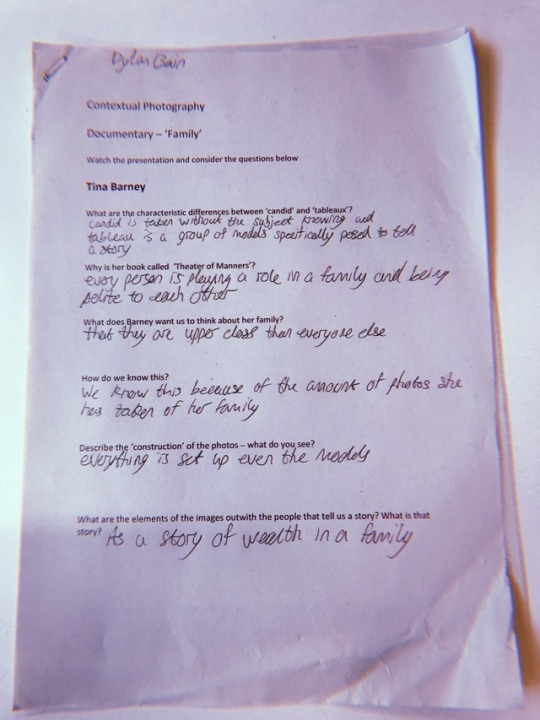 Dylan Bain
Contextual Photography
Documentary – 'Family'
Watch the presentation and consider the questions below
Tina Barney
What are the characteristic differences between 'candid' and 'tableaux'?
candid is taken without the subject knowing and
tableau is a group of models specifically posed to tell
a story
Why is her book called 'Theater of Manners'?
every person is playing a role in a family and being
polite to each other
What does Barney want us to think about her family?
that they are upper class than everyone else
How do we know this?
We know this because of the amount of photos she
has taken of her family
Describe the 'construction' of the photos – what do you see?
everything is set up even the models
What are the elements of the images outwith the people that tell us a story? What is that
story? As a story of wealth in a family